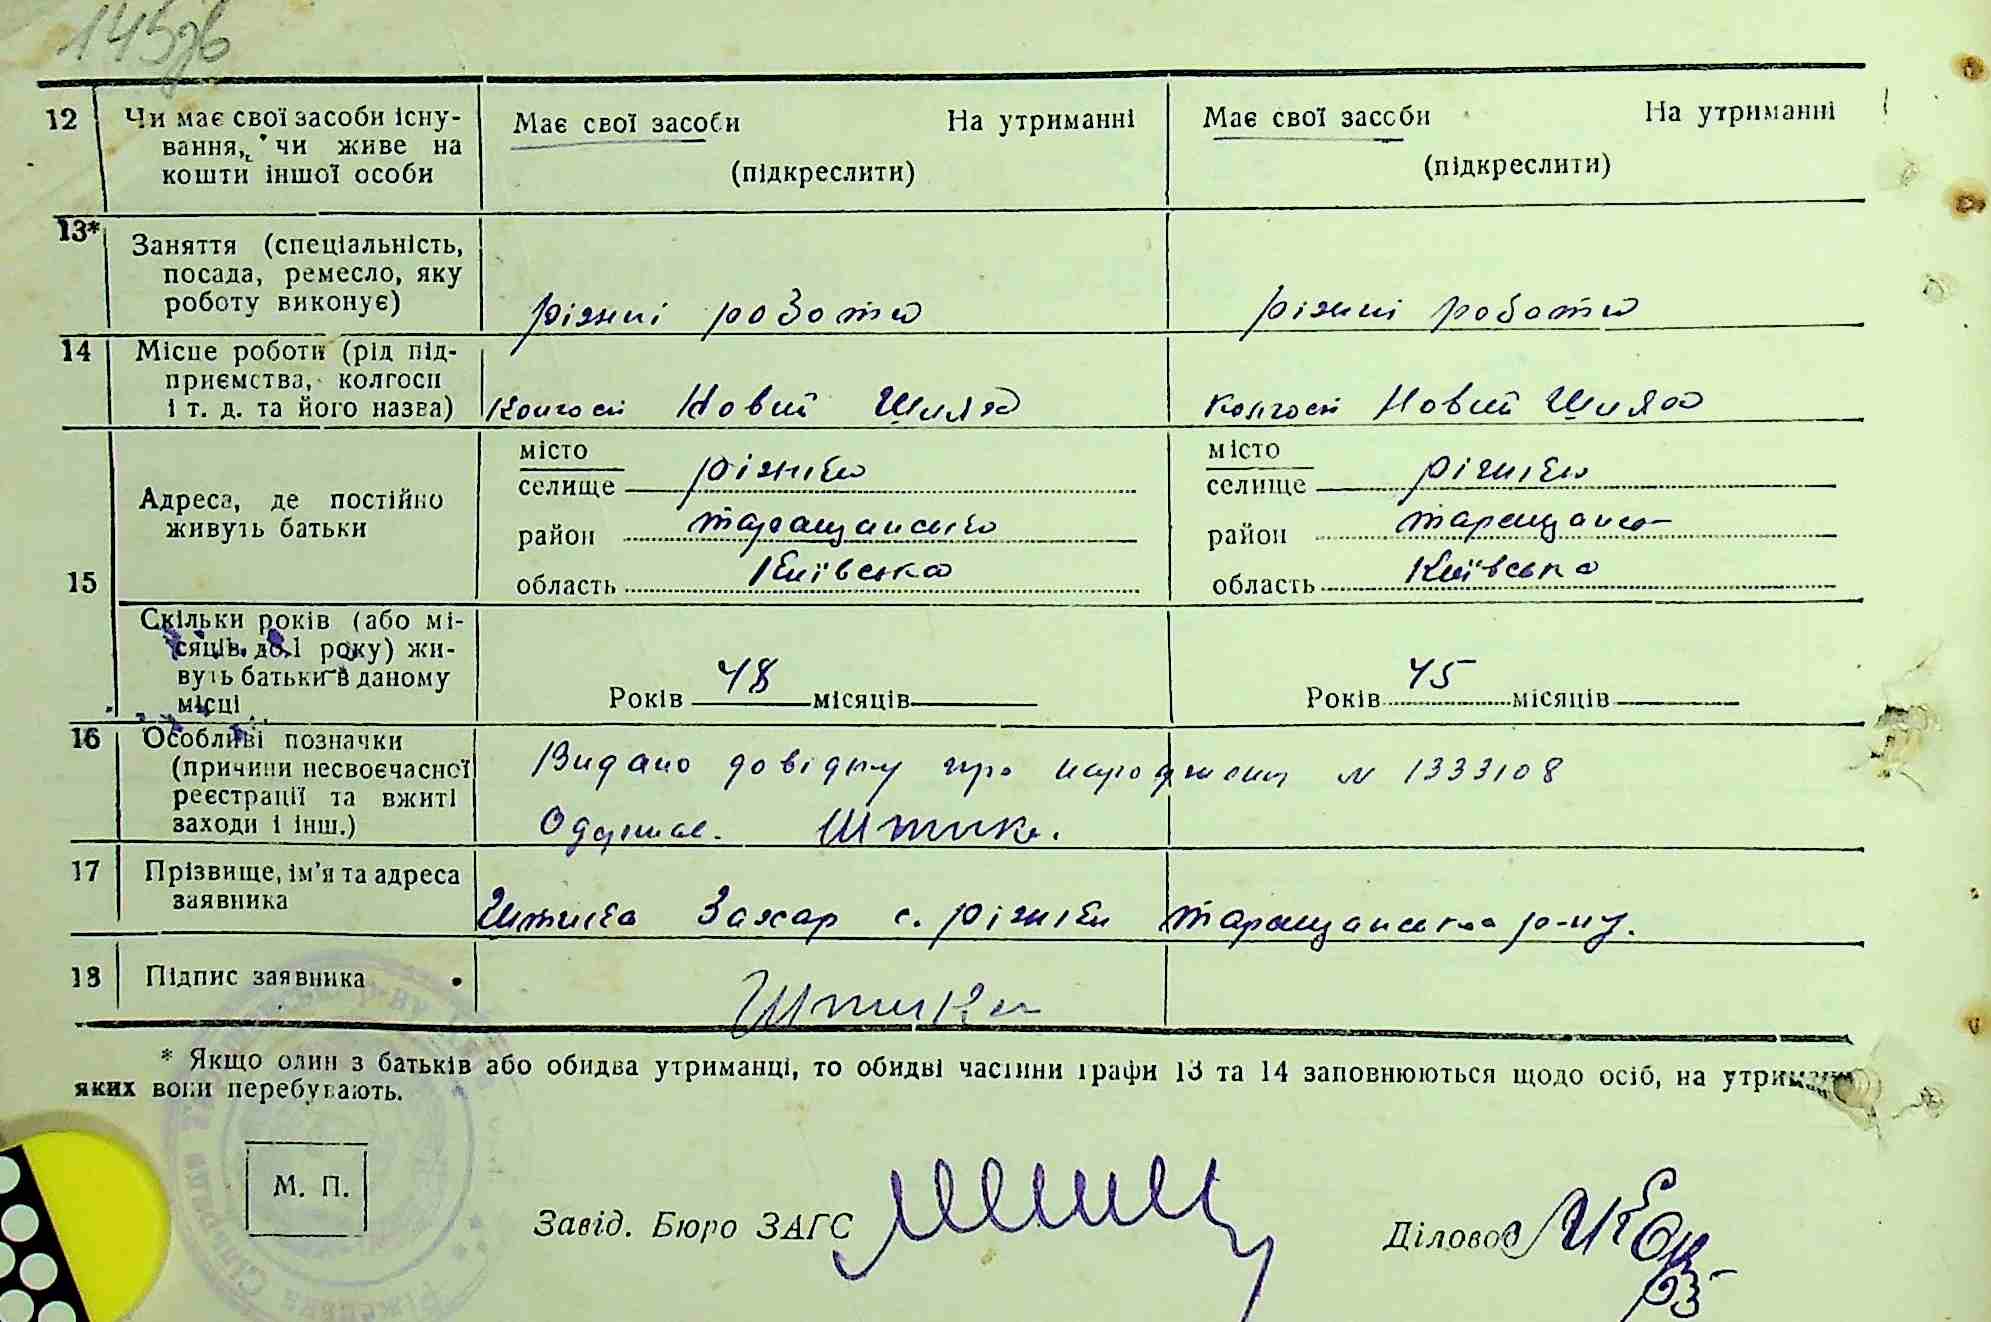 145зв
12
Чи має свої засоби існу-
вання, чи живе на
кошти іншої особи
Має свої засоби На утриманні
(підкреслити)
Має свої засоби На утриманні
(підкреслити)
13*
Заняття (спеціальність,
посада, ремесло, яку
роботу виконує)
ріжні роботи
ріжні роботи
14
Місце роботи (рід під-
приємства, колгосп
і т. д. та його назва)
Колгосп Новий Шлях
Колгосп Новий Шлях
15
Адреса, де постійно
живуть батьки
місто
селище ріжкы
район таращанськ
область Київська
місто
селище ріжкы
район таращансь
область Київська
Скільки років (або мі-
сяців до 1 року) жи-
вуть батьки в даному
місці
Років 48 місяців
Років 45 місяців
16
Особливі позначки
(причини несвоєчасної
реєстрації та вжиті
заходи і інш.)
Видано довідку про народження № 1333108
Одержав. Штика.
17
Прізвище, ім'я та адреса
заявника
Штика Захар с. ріжкы таращанська р-ну.
18
Підпис заявника
Штика
* Якщо один з батьків або обидва утриманці, то обидві частини графи 13 та 14 заповнюються щодо осіб, на утриманні
яких вони перебувають.
М. П.
Завід. Бюро ЗАГС
Діловод